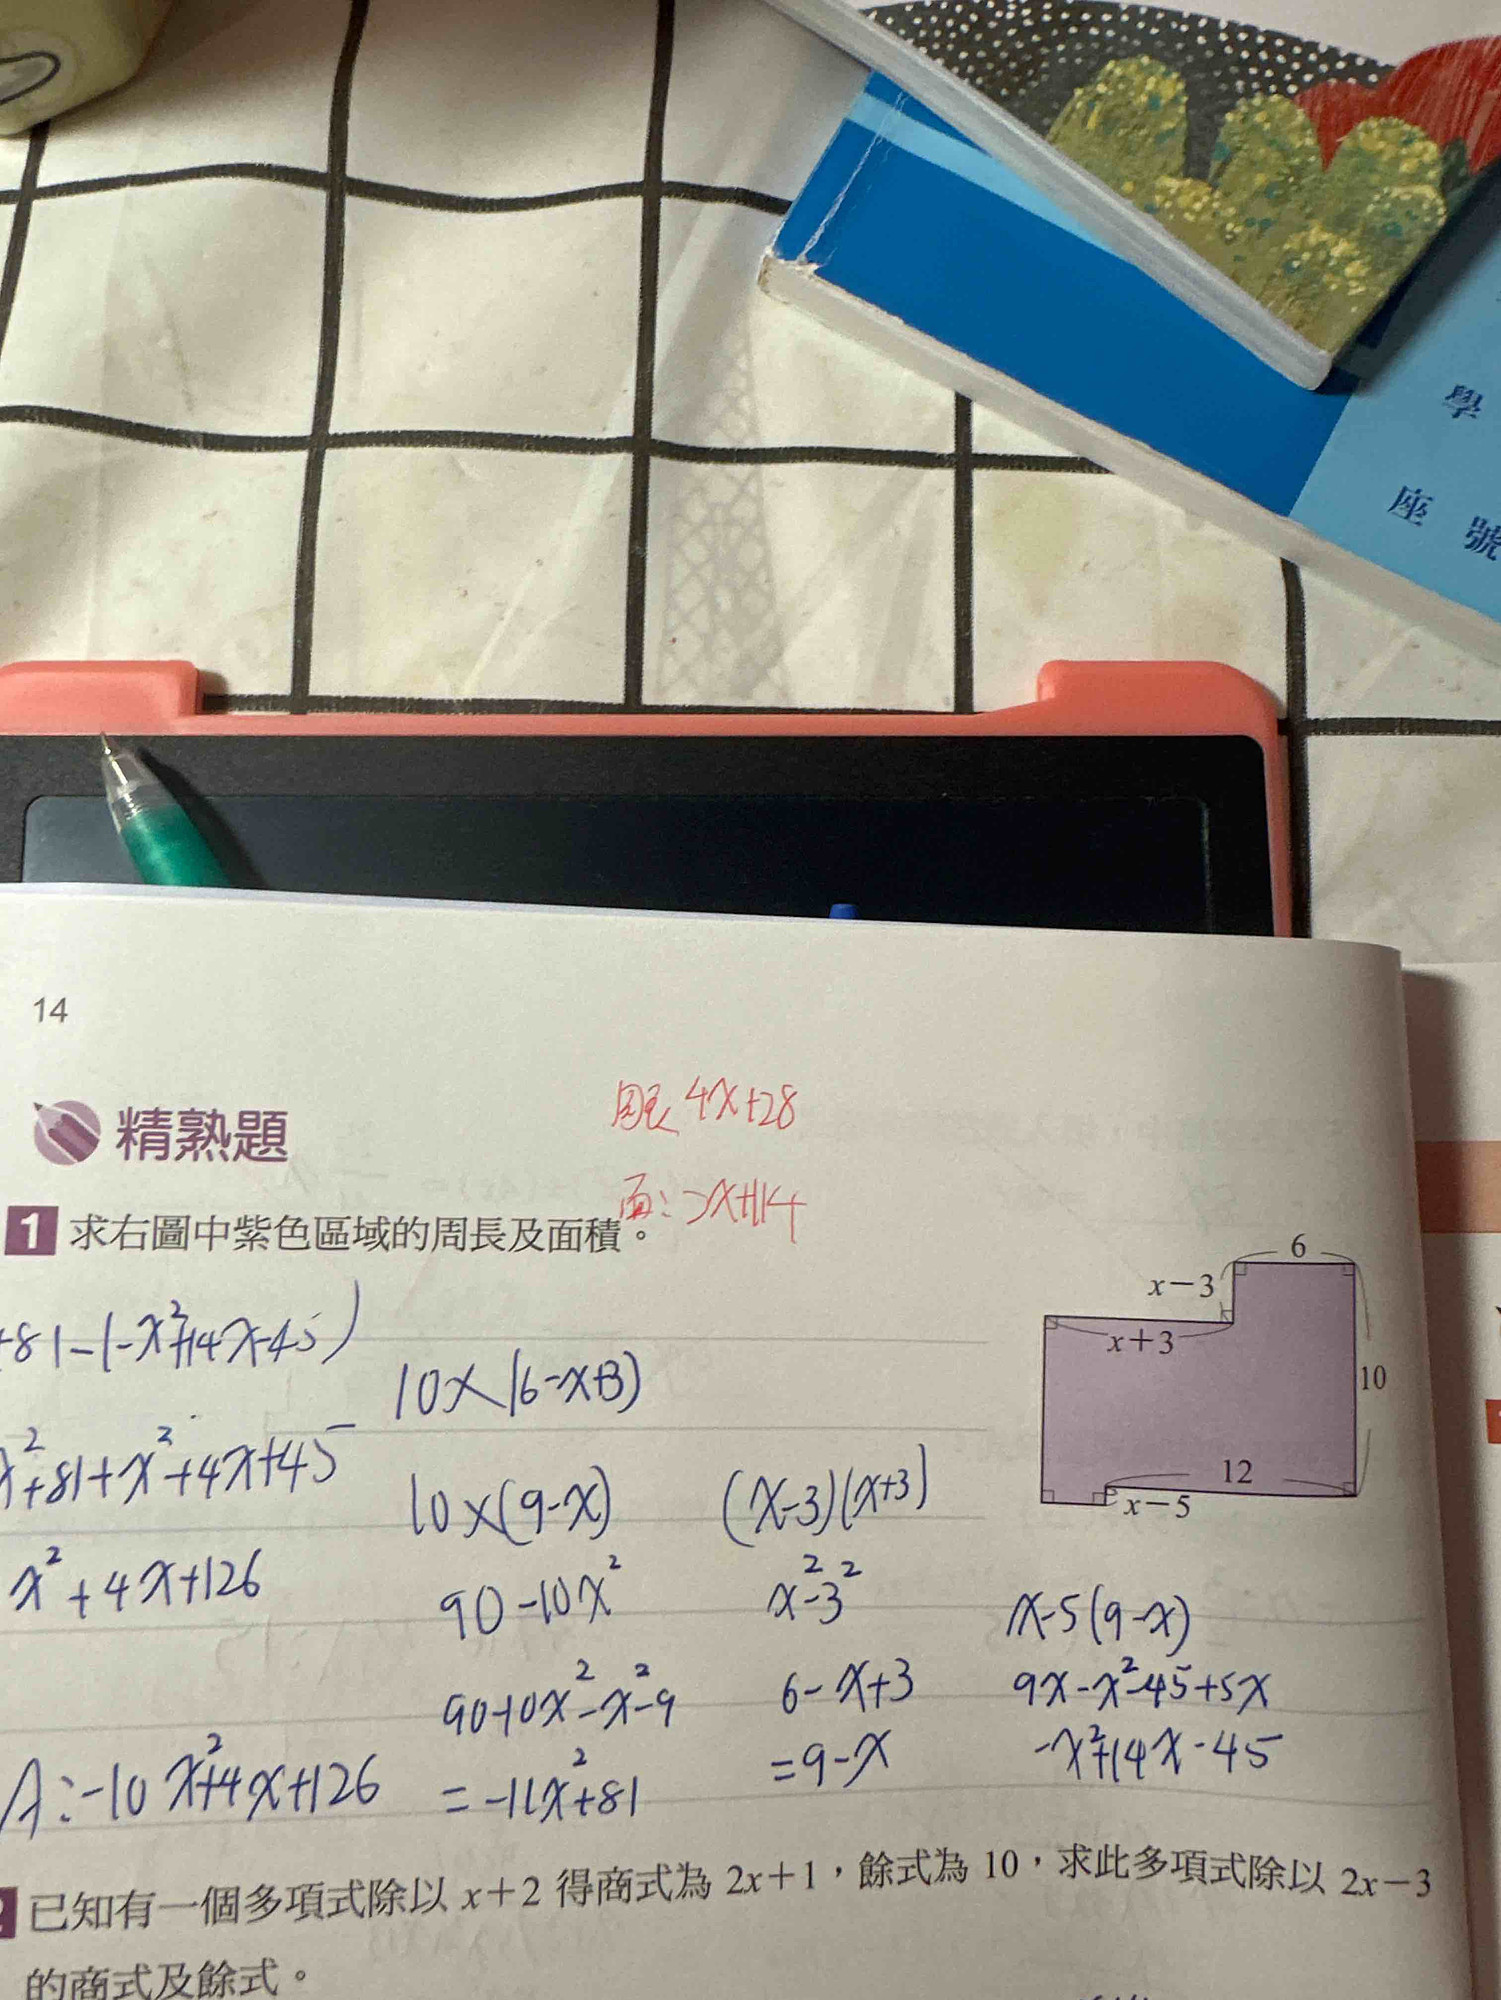 學
座 號
14
精熟題
周長 4x+28
面: >x+114
1 求右圖中紫色區域的周長及面積。
6
x－3
x＋3
10
12
x－5
+81-(-x²+14x-45)
x²+81+x²+4x+45
x²+4x+126
A:-10x²+4x+126
10×(6-x+3)
10×(9-x)
90-10x²
90-10x²-x²-9
=-11x²+81
(x-3)(x+3)
x²-3²
6-x+3
=9-x
x-5(9-x)
9x-x²-45+5x
-x²+14x-45
2 已知有一個多項式除以 x＋2 得商式為 2x＋1，餘式為 10，求此多項式除以 2x－3
的商式及餘式。